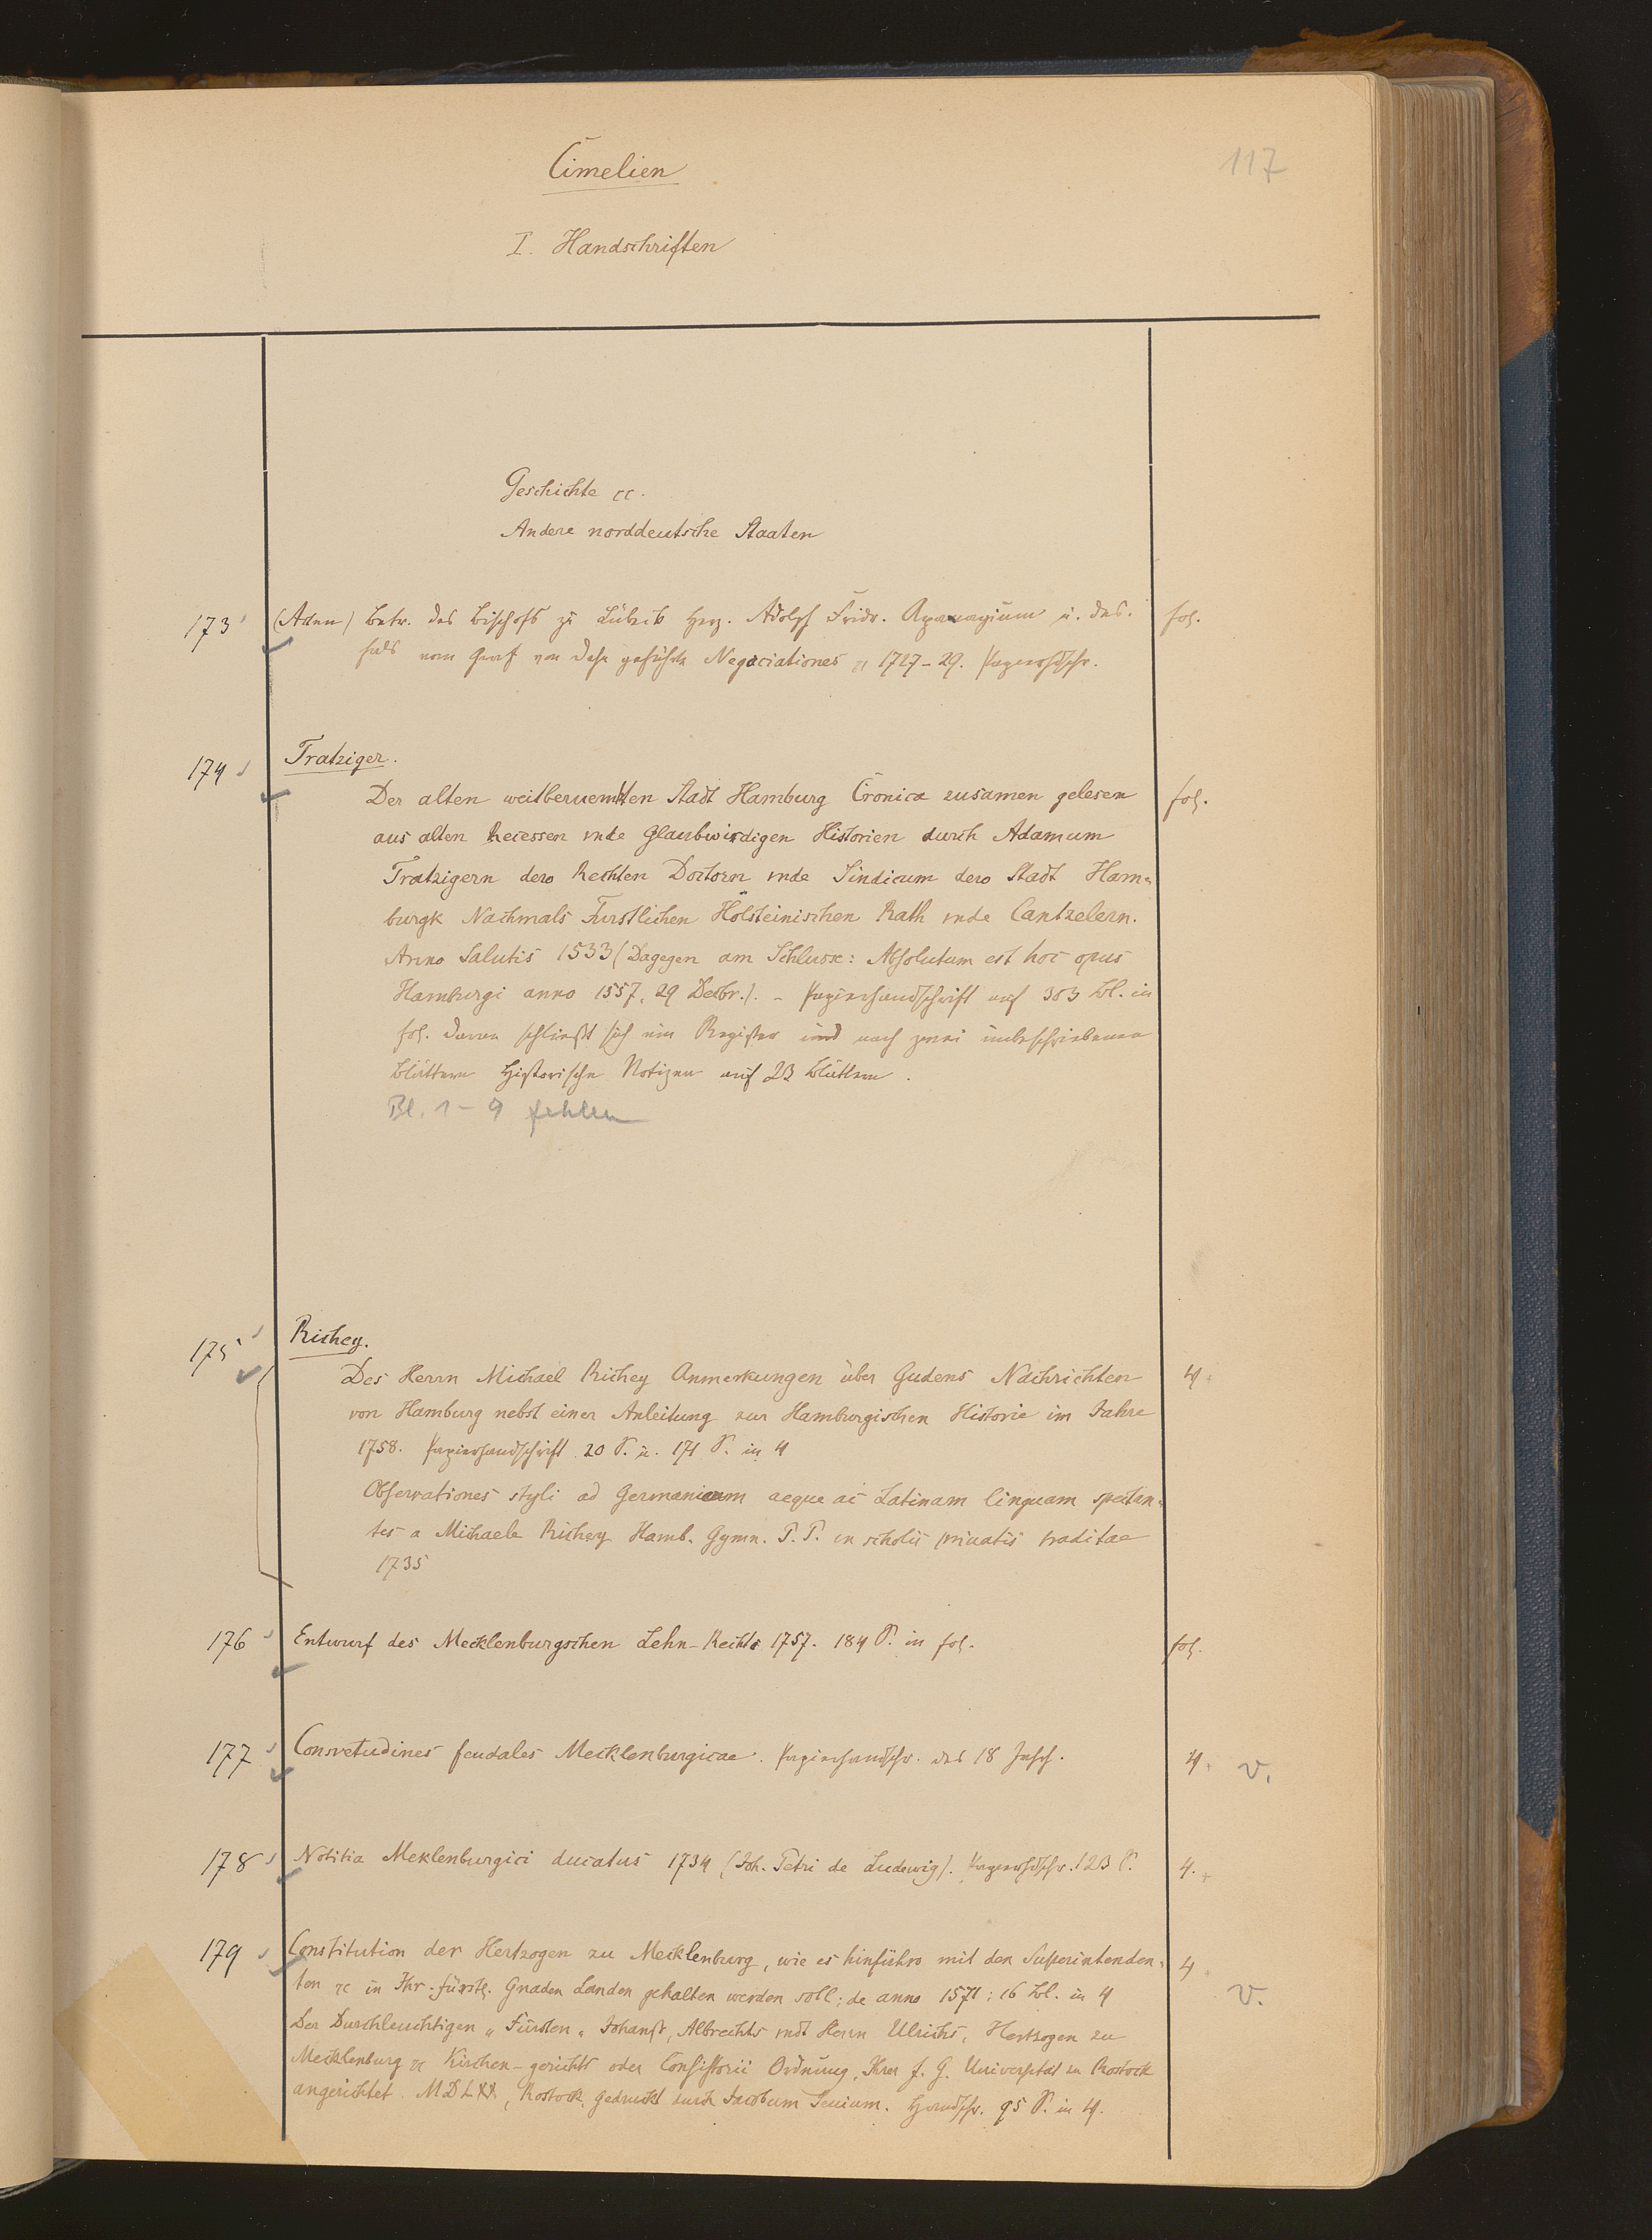 Cimelien
117
I. Handschriften
Geschichte cc.
Andere norddeutsche Staaten
173 (Acten) betr. des Bischofs zu Lübeck Herz. Adolph Fridr. Apanagium u. des- fol.
falls vom Graf von Dehn geführte Negociationes 1727-29. Papierhdschr.
174 Tratziger.
Der alten weitberuembten Stadt Hamburg Cronica zusamen gelesen fol.
aus alten Recessen vnde Glaubwirdigen Historien durch Adamum
Tratzigern dero Rechten Doctorn vnde Sindicum dero Stadt Ham-
burgk Nachmals Furstlichen Hölsteinischen Rath vnde Cantzelern.
Anno Salutis 1533 (Dagegen am Schlusse: Absolutum est hoc opus
Hamburgi anno 1557, 29 Decbr.). - Papierhandschrift auf 303 Bl. in
fol. Daran schließt sich ein Register und nach zwei unbeschriebenen
Blättern Historische Notizen auf 23 Blättern.
Bl. 1-9 fehlen
175 Richey.
Des Herrn Michael Richey Anmerkungen über Gudens Nachrichten 4
von Hamburg nebst einer Anleitung zur Hamburgischen Historie im Jahre
1758. Papierhandschrift 20 S. u. 171 S. in 4
Observationes styli ad Germanicam aeque ac Latinam linguam spectan-
tes a Michaele Richey Hamb. Gymn. P.P. in scholis privatis traditae
1735
176 Entwurf des Mecklenburgschen Lehn-Rechts 1757. 184 S. in fol. fol.
177 Consvetudines feudales Mecklenburgicae. Papierhandschr. des 18 Jahrh. 4 v.
178 Notitia Meklenburgici ducatus 1734 (Joh. Petri de Ludewig). Papierhdschr. 123 S. 4.
179 Constitution der Hertzogen zu Mecklenburg, wie es hinführo mit den Superintenden- 4
ten cc in Ihr. fürstl. Gnaden Landen gehalten werden soll; de anno 1571; 16 Bl. in 4 v.
Der Durchleuchtigen „Fürsten„ Johanst, Albrechts vndt Herrn Ulrichs, Hertzogen zu
Mecklenburg cc Kirchen-gerichts oder Consistorii Ordnung, Ihrer f. G. Universitat zu Rostock
angerichtet. MDLXX, Rostock, gedruckt durch Jacobum Lucium. Handschr. 95 S. in 4.